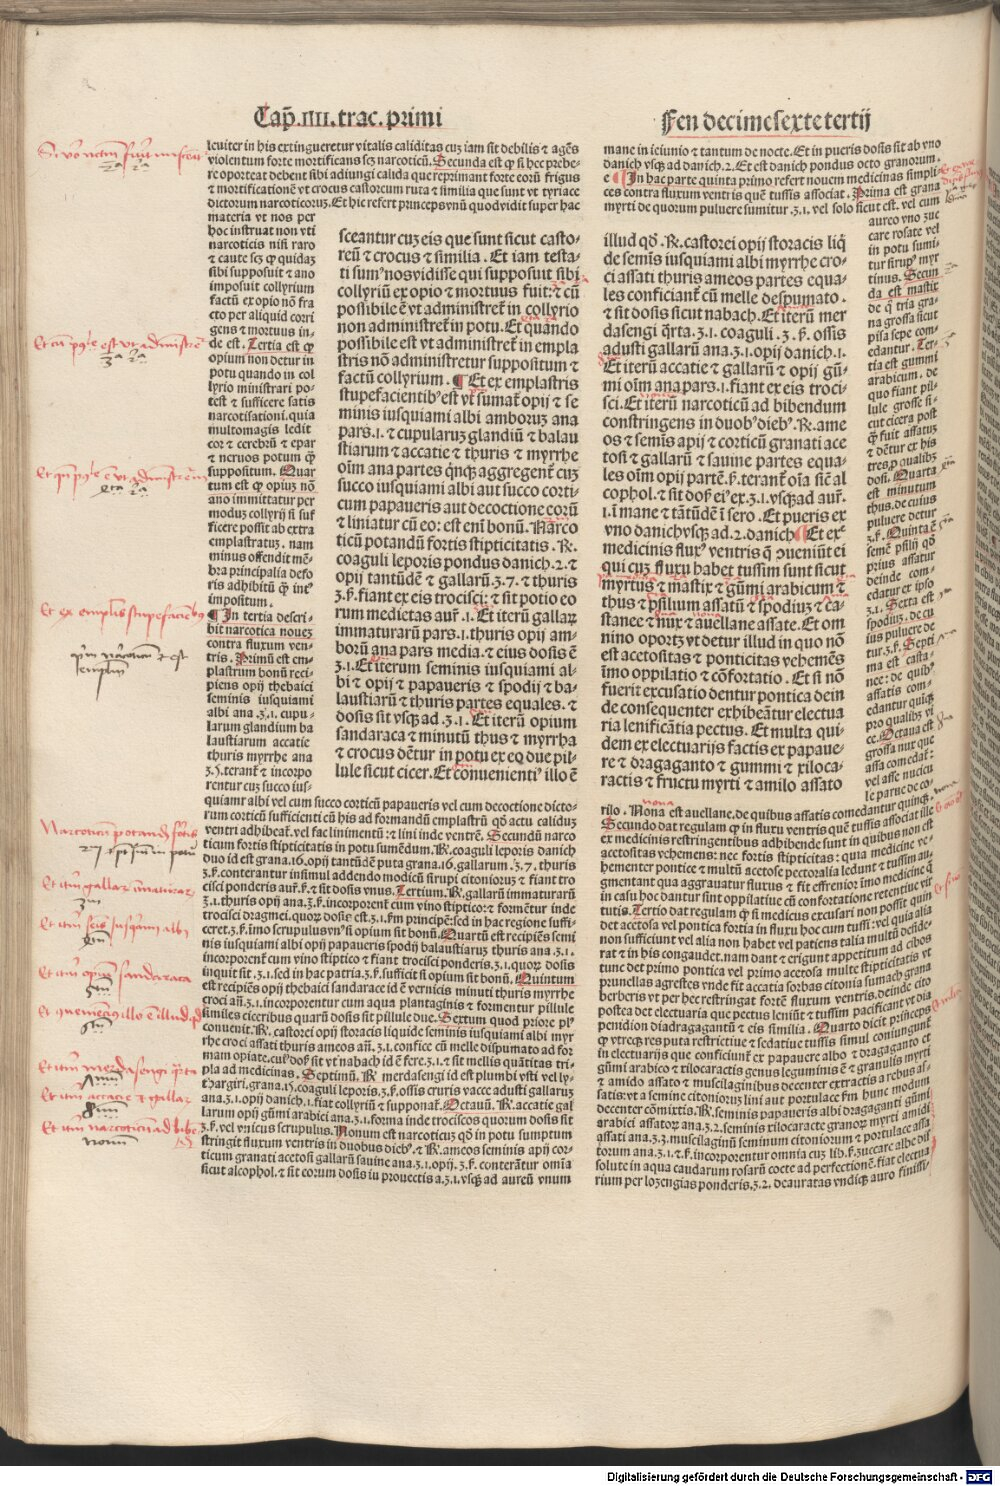 Cap̄.IIII.trac.primi
Fen decimesexte tertij
leuiter in his extingueretur vitalis caliditas cuz iam sit debilis ⁊ agēs
violentum forte mortificans scȝ narcoticū. Secunda est ꝙ si hec prebe-
re oporteat debent sibi adiungi calida que reprimant forte eorū frigus
⁊ mortificationē vt crocus castorcum ruta ⁊ similia que sunt vt tyriace
dictorum narcoticoruȝ. Et hic refert princeps vnū quod vidit super hac
materia vt nos per
hoc instruat non vti
narcoticis nisi raro
⁊ caute scȝ ꝙ quidaȝ
sibi supposuit ⁊ ano
imposuit collyrium
factū ex opio nō fra
cto per aliquid corri
gens ⁊ mortuus in-
de est. Tertia est ꝙ
opium non detur in
potu quando in col
lyrio ministrari po-
test ⁊ sufficere satis
narcotisationi. quia
multomagis ledit
cor ⁊ cerebrū ⁊ epar
⁊ neruos potum ꝙ̄
suppositum. Quar
tum est ꝙ opiuȝ nō
ano immittatur per
moduȝ collyrij si suf
ficere possit ab extra
emplastratuȝ. nam
minus offendit mē-
bra principalia defo
ris adhibitū ꝙ̄ ineꝰ
impositum.
¶ In tertia descri-
bit narcotica nouez
contra fluxum ven-
tris. Primū est em-
plastrum bonū reci-
piens opij thebaici
seminis iusquiami
albi ana .ʒ.1. cupu-
larum glandium ba
laustiarum accatie
thuris myrrhe ana
ʒ.5. terant̄ ⁊ incorpo
rentur cuȝ succo ius-
quiamr albi vel cum succo corticū papaueris vel cum decoctione dicto-
rum corticū sufficienti cū his ad formandū emplastrū qđ actu caliduȝ
ventri adhibeat̄. vel fac linimentū: ⁊ lini inde ventrē. Secundū narco
ticum fortis stipticitatis in potu sumēdum. R̄. coaguli leporis danich
duo id est grana.16.opij tantūdē puta grana.16.gallarum.ʒ.7. thuris
ʒ.ß.conterantur insimul addendo modicū sirupi citoniorus ⁊ fiant tro
cisci ponderis aur̄.ß.⁊ sit dosis vnus. Tertium. R̄. gallarū immaturarū
ʒ.1.thuris opij ana.ʒ.ß.incorporent̄ cum vino stiptico: ⁊ formētur inde
trocisci dragmei. quoȝ dosis est.ʒ.1.fm principē: sed in hac regione suffi-
ceret.ʒ.ß.imo scrupulus vnꝰ si opium sit bonū. Quartū est recipiēs semi
nis iusquiami albi opij papaueris spodij balaustiaruȝ thuris ana.ʒ.1.
incorporent̄ cum vino stiptico ⁊ fiant trocisci ponderis.ʒ.1.quoȝ dosis
inquit sit.ʒ.1.sed in hac patria.ʒ.ß.sufficit si opium sit bonū. Quintum
est recipiēs opij thebaici sandarace id ē vernicis minuti thuris myrrhe
croci añ.ʒ.1.incorporentur cum aqua plantaginis ⁊ formentur pillule
similes ciceribus quarū dosis sit pillule due. Sextum quod priore plꝰ
conuenit. R̄. castorei opij storacis liquide seminis iusquiami albi myr
rhe croci assati thuris ameos añ.ʒ.1.confice cū melle dispumato ad for
mam opiate. cuiꝰ dosꝭ sit vt nabach id ē fere.ʒ.1.⁊ sit mellis quātitas tri-
pla ad medicinas. Septimū. R̄ merdasengi id est plumbi vsti vel ly-
thargiri.grana.15.coaguli leporis.ʒ.ß.ossis cruris vacce adusti gallaruȝ
ana.ʒ.1.opij danich.1.fiat collyriū ⁊ supponat̄. Octauū. R̄. accatie gal
larum opij gūmi arabici ana.ʒ.1.forma inde trociscos quorum dosis sit
ʒ.ß.vel vnicus scrupulus. Nonum est narcoticuȝ qđ in potu sumptum
stringit fluxum ventris in duobus diebꝰ. ⁊ R̄. ameos seminis apij cor-
ticum granati acetosi gallarū sauine ana.ʒ.1.opij.ʒ.ß.conterātur omīa
sicut alcophol.⁊ sit eorum dosis iu prouectis a.ʒ.1.vsqȝ ad aureū vnum
sceantur cuȝ eis que sunt sicut casto-
reū ⁊ crocus ⁊ similia. Et iam testa-
ti sumꝰ nos vidisse qui supposuit sibi
collyriū ex opio ⁊ mortuus fuit: ⁊ cū
possibile ē vt administret̄ in collyrio
non administret̄ in potu. Et quādo
possibile est vt administret̄ in empla
stris nō administretur suppositum ⁊
factū collyrium. ¶ Et ex emplastris
stupefacientibꝰ est vt sumat̄ opij ⁊ se
minis iusquiami albi amboruȝ ana
pars.1. ⁊ cupularuȝ glandiū ⁊ balau
stiarum ⁊ accatie ⁊ thuris ⁊ myrrhe
oīm ana partes qnqȝ aggregent̄ cuȝ
succo iusquiami albi aut succo corti-
cum papaueris aut decoctione eorū
⁊ liniatur cū eo: est enī bonū. Narco
ticū potandū fortis stipticitatis. R̄.
coaguli leporis pondus danich.2.⁊
opij tantūdē ⁊ gallarū.ʒ.7.⁊ thuris
ʒ.ß.fiant ex eis trocisci: ⁊ sit potio eo
rum medietas aur̄ .1. Et iterū gallaȝ
immaturarū pars.1.thuris opij am-
borū ana pars media.⁊ eius dosis ē
ʒ.1. Et iterum seminis iusquiami al-
bi ⁊ opij ⁊ papaueris ⁊ spodij ⁊ ba-
laustiarū ⁊ thuris partes equales. ⁊
dosis sit vsqȝ ad .ʒ.1. Et iterū opium
sandaraca ⁊ minutū thus ⁊ myrrha
⁊ crocus dētur in potu ex eq due pil-
lule sicut cicer. Et conuenientiꝰ illo ē
mane in ieiunio ⁊ tantum de nocte. Et in pueris dosis sit ab vno
danich vsqȝ ad danich.2. Et est danich pondus octo granorum.
¶ In hac parte quinta primo refert nouem medicinas simpli
ces contra fluxum ventris quē tussis associat. Prima est grana
myrti de quorum puluere sumitur.ʒ.1. vel solo sicut est. vel cum
aureo vno zuc
care rosate vel
in potu sumi-
tur sirupꝰ myr
tinus. Secun
da est mastix
de ꝗ̄ tria gra-
na grossa sicut
pisa sepe com-
edantur. Ter-
tia est gummi
arabicum. de
quo fiant pil-
lule grosse si-
cut cicera post
ꝙ̄ fuit assatus
⁊ dētur ex his
tres ꝓ qualibȝ
dosi. Quarta
est minutum
thus. de cuius
puluere detur
ʒ.ß. Quinta ē
semē psilij qđ
prius assatur
deinde com-
edatur ex ipso
ʒ.1. Sexta est
spodiuȝ. de cu
ius puluere de
tur.ʒ.ß. Septi
ma est casta-
nee: de quibꝰ
assatis com-
edantur quīqȝ
pro qualibȝ vi
ce. Octaua est
grossa nux que
assa comedat̄:
vel asse nucicu
le parue de co-
illud qđ. R̄. castorei opij storacis liq̄
de semīs iusquiami albi myrrhe cro-
ci assati thuris ameos partes equa-
les conficiant̄ cū melle despumato .
⁊ sit dosis sicut nabach. Et iterū mer
dasengi q̄rta .ʒ.1. coaguli .ʒ.ß. ossis
adusti gallarū ana.ʒ.1.opij danich.1.
Et iterū accatie ⁊ gallarū ⁊ opij gū-
mi oīm ana pars.1.fiant ex eis troci-
sci. Et iterū narcoticū ad bibendum
constringens in duobꝰ diebꝰ. R̄. ame
os ⁊ semīs apij ⁊ corticū granati ace
tosi ⁊ gallarū ⁊ sauine partes equa-
les oīm opij partē.ß. terant̄ oīa sic̄ al
cophol.⁊ sit dosꝭ eiꝰ ex .ʒ.1. vsqȝ ad aur̄.
1. ī mane ⁊ tātūdē ī sero . Et pueris ex
vno danich vsqȝ ad .2. danich. ¶ Et exͤ
medicinis fluxꝰ ventris q̄ ꝯueniūt ei
qui cuȝ fluxu habet tussim sunt sicut
myrtus ⁊ mastix ⁊ gūmi arabicum ⁊
thus ⁊ psilium assatū ⁊ spodiuȝ ⁊ ca-
stanee ⁊ nux ⁊ auellane assate. Et om
nino oportȝ vt detur illud in quo nō
est acetositas ⁊ ponticitas vehemēs
īmo oppilatio ⁊ cōfortatio. Et si nō
fuerit excusatio dentur pontica dein
de consequenter exhibeātur electua
ria lenificātia pectus. Et multa qui-
dem ex electuarijs factis ex papaue-
re ⁊ dragaganto ⁊ gummi ⁊ xiloca-
ractis ⁊ fructu myrti ⁊ amilo assato
rilo. Nona est auellane. de quibus assatis comedantur quinqȝ.
Secundo dat regulam ꝙ in fluxu ventris quē tussis associat ille
ex medicinis restringentibus adhibende sunt in quibus non est
acetositas vehemens: nec fortis stipticitas: quia medicine ve-
hementer pontice ⁊ multū acetose pectoralia ledunt ⁊ tussim au
gmentant qua aggrauatur fluxus ⁊ fit effrenior: imo medicine q̄
in casu hoc dantur sint oppilatiue cū confortatione retentiue vir
tutis. Tertio dat regulam ꝙ si medicus excusari non possit quin
det acetosa vel pontica fortia in fluxu hoc cum tussi: vel quia alia
non sufficiunt vel alia non habet vel patiens talia multū deside-
rat ⁊ in his congaudet. nam dant ⁊ erigunt appetitum ad cibos
tunc det primo pontica vel primo acetosa multe stipticitatis vt
prunellas agrestes vnde fit accatia sorbas citonia sumach grana
berberis vt per hec restringat fortē fluxum ventris. deinde cito
postea det electuaria que pectus leniūt ⁊ tussim pacificant vt dia
penidion diadragagantū ⁊ eis similia . Quarto dicit princeps
ꝙ vtreqȝ res puta restrictiue ⁊ sedatiue tussis simul coniungunt̄
in electuarijs que conficiunt̄ ex papauere albo ⁊ dragaganto et
gūmi arabico ⁊ xilocaractis genus leguminis ē ⁊ granulis myrti
⁊ amido assato ⁊ muscilaginibus decenter extractis a rebus as-
satis: vt a semine citoniorus lini aut portulace fm hunc modum
decenter cōmixtis. R̄. seminis papaueris albi dragaganti gūmi
arabici assatoȝ ana.ʒ.2.seminis xilocaracte granoȝ myrti amidi
assati ana.ʒ.3.muscilaginū seminum citoniorum ⁊ portulace assa
torum ana.ʒ.1.⁊.ß.incorporentur omnia cuȝ lib.ß.zuccare albe dis
solute in aqua caudarum rosarū cocte ad perfectionē. fiat electua
rium per loȝengias ponderis.ʒ.2. deauratas vndiqȝ auro finissi-
Digitalisierung gefördert durch die Deutsche Forschungsgemeinschaft - DFG